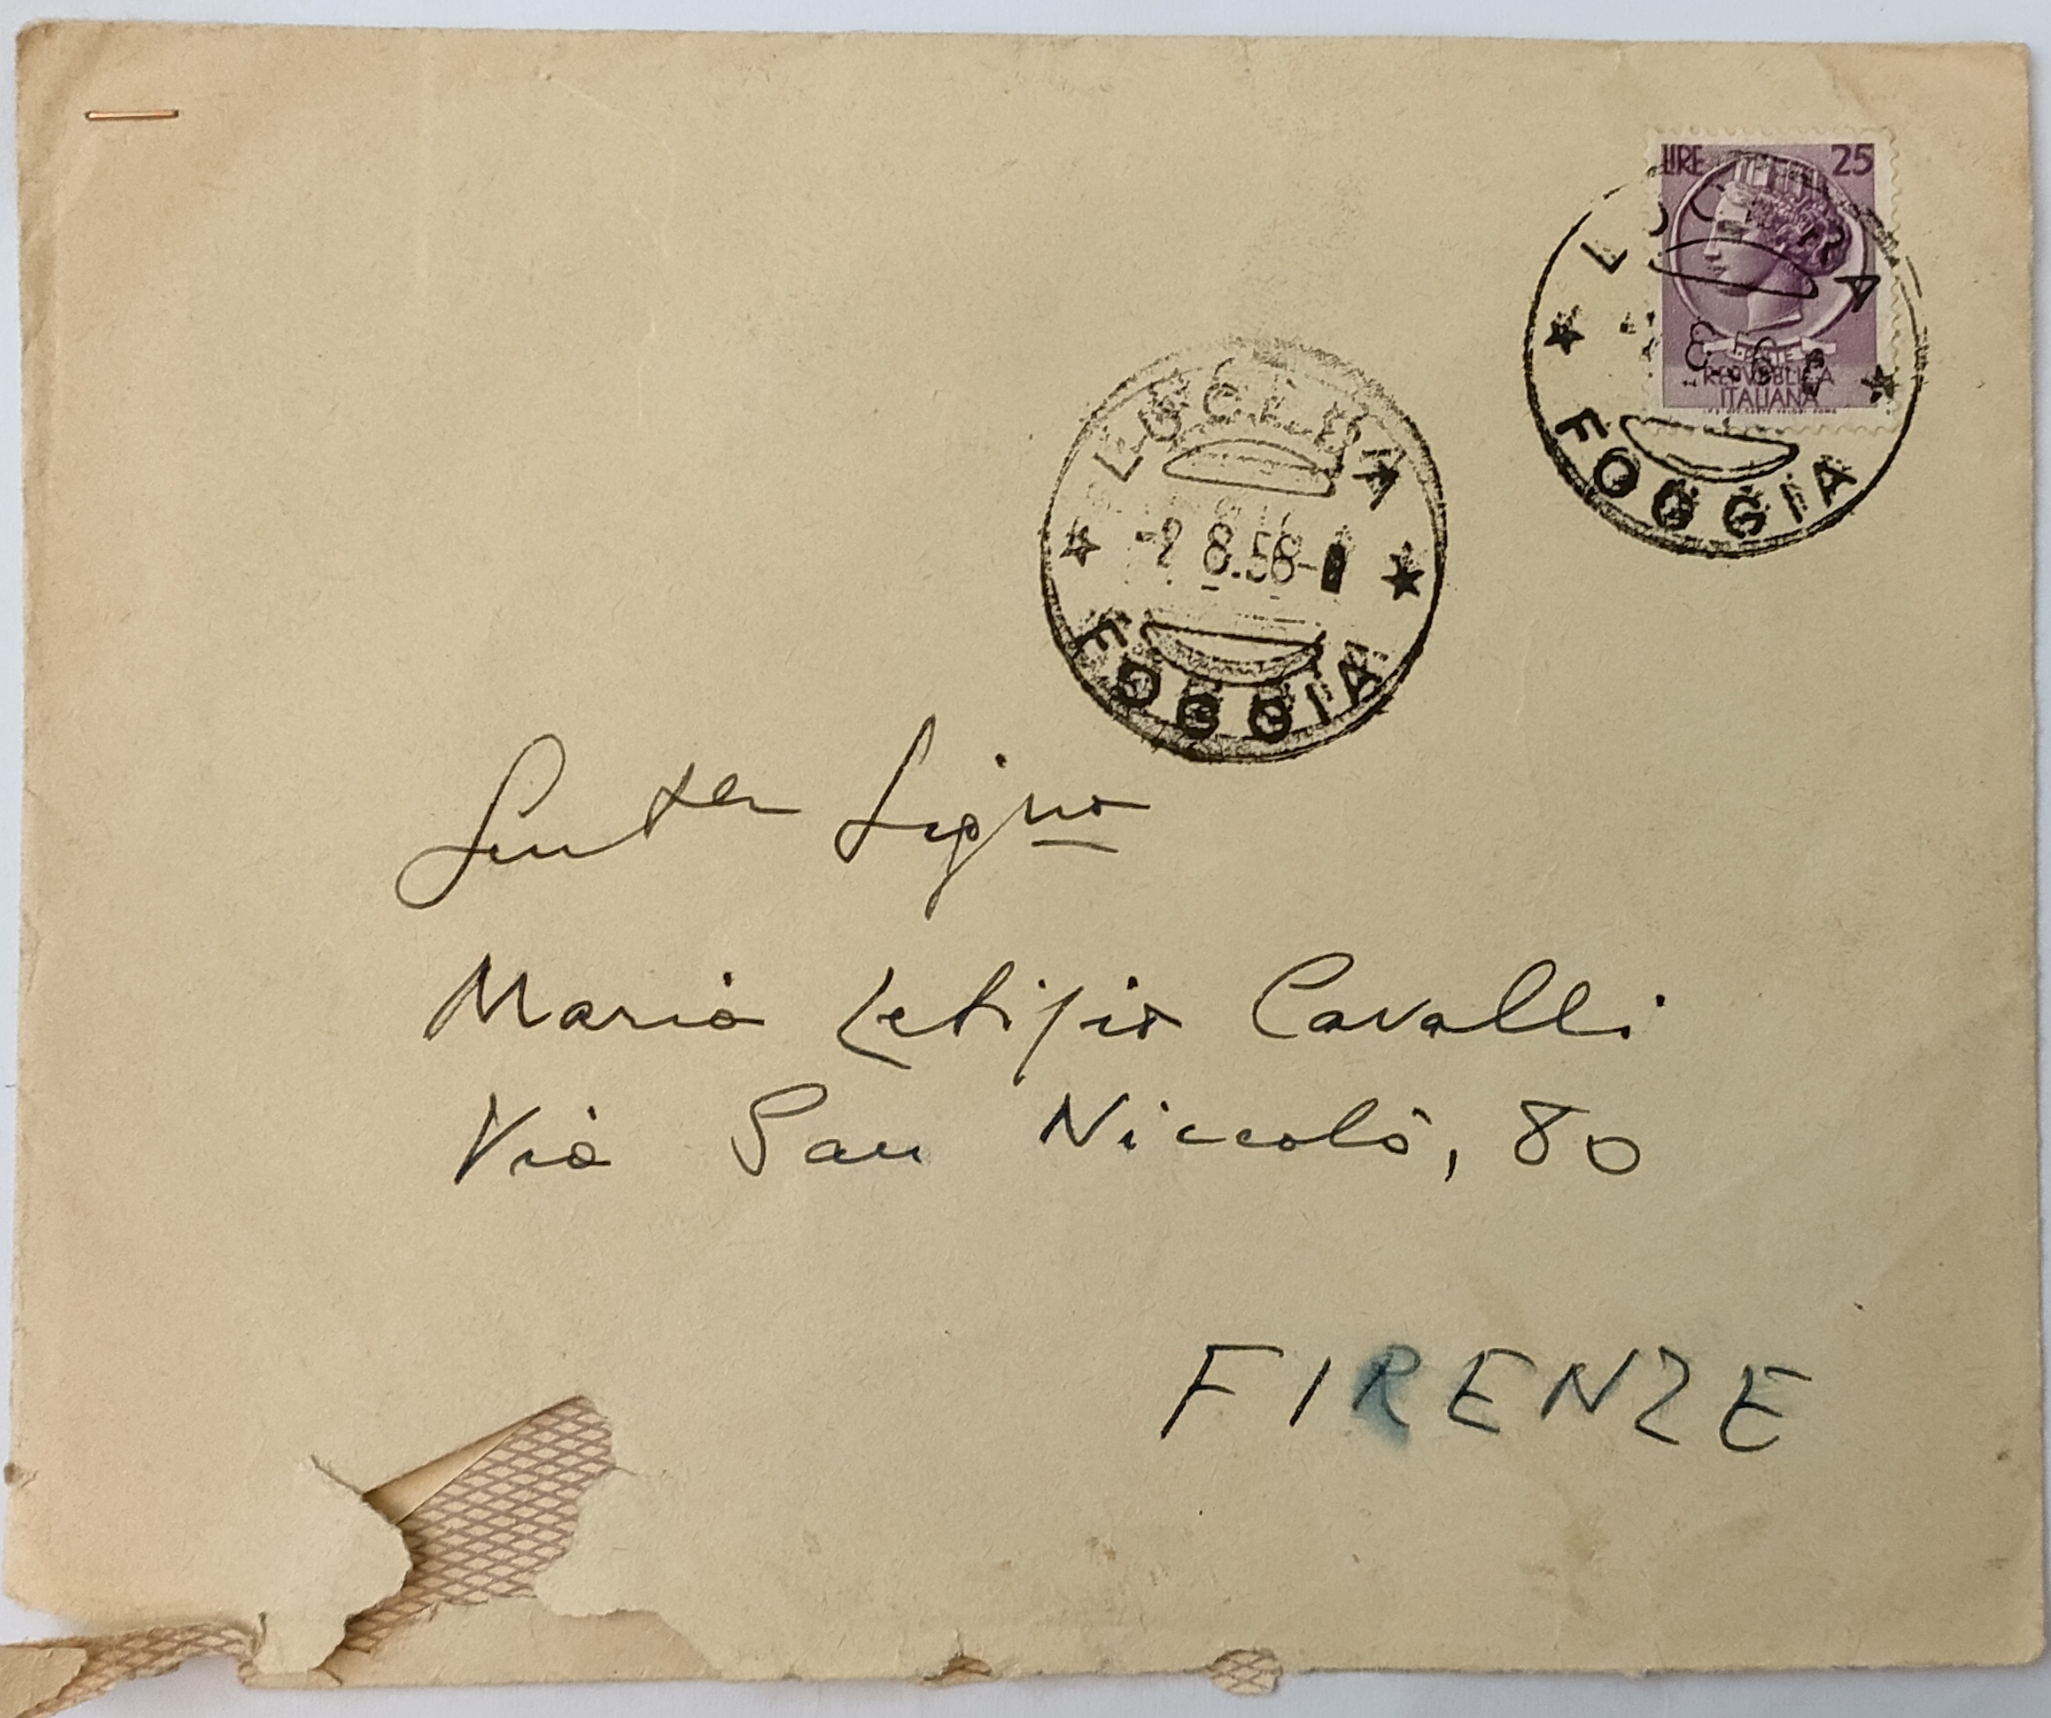 LIRE 25
POSTE
REPVBBLICA
ITALIANA
LUCERA
FOGGIA
LUCERA
-2.8.58-
FOGGIA
Gent.ma Sig.na
Maria Letizia Cavalli
Via San Niccolò, 80
FIRENZE